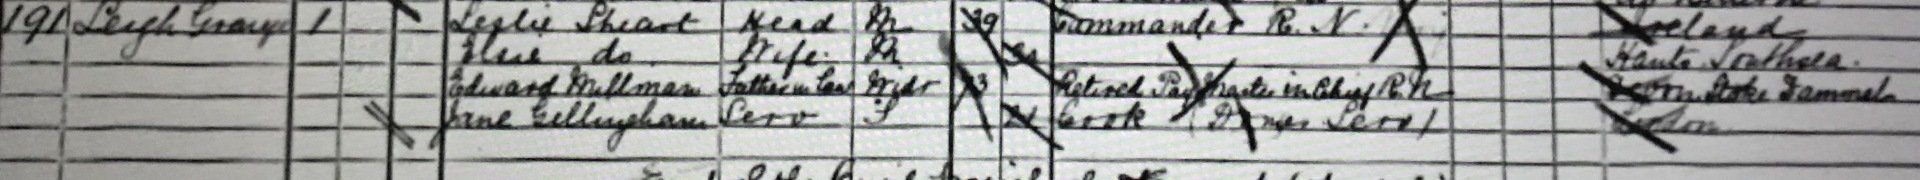 191 Leigh Grange 1 Leslie Stuart Head M 39 Commander R. N. Ireland
Elsie do. Wife M Hants Southsea.
Edward Millman Father in law Widr 73 Retired Paymaster in Chief R.N. Devon Stoke Damerel
Jane Gellingham Serv S 21 Cook (Domes Serv)